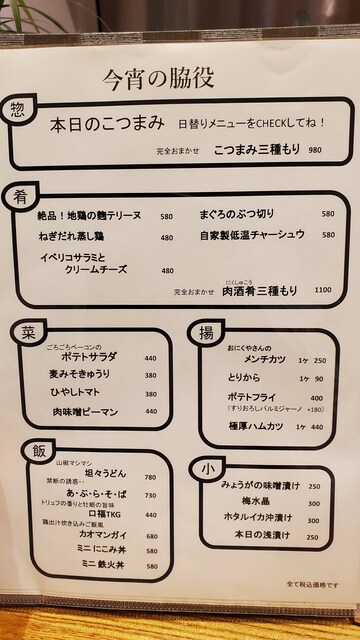 今宵の脇役
惣
本日のこつまみ 日替りメニューをCHECKしてね!
完全おまかせ こつまみ三種もり 980
肴
絶品!地鶏の麴テリーヌ 580
ねぎだれ蒸し鶏 480
イベリコサラミと
クリームチーズ 480
まぐろのぶつ切り 580
自家製低温チャーシュウ 580
にくしゅこう
完全おまかせ 肉酒肴三種もり 1100
菜
ごろごろベーコンの
ポテトサラダ 440
麦みそきゅうり 380
ひやしトマト 380
肉味噌ピーマン 440
揚
おにくやさんの
メンチカツ 1ケ 250
とりから 1ケ 90
ポテトフライ 400
(すりおろしパルミジャーノ +180)
極厚ハムカツ 1ケ 440
飯
山椒マシマシ
坦々うどん 780
禁断の誘惑‥
あ・ぶ・ら・そ・ば 730
トリュフの香りと牡蛎の旨味
口福TKG 440
鶏出汁炊き込みご飯風
カオマンガイ 680
ミニ にこみ丼 580
ミニ 鉄火丼 580
小
みょうがの味噌漬け 250
梅水晶 300
ホタルイカ沖漬け 300
本日の浅漬け 250
全て税込価格です